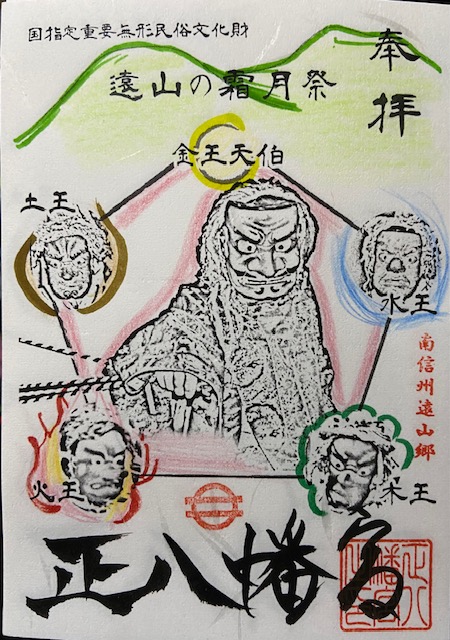 国指定重要無形民俗文化財
奉拝
遠山の霜月祭
金王天伯
土王
水王
南信州遠山郷
火王
木王
正八幡宮